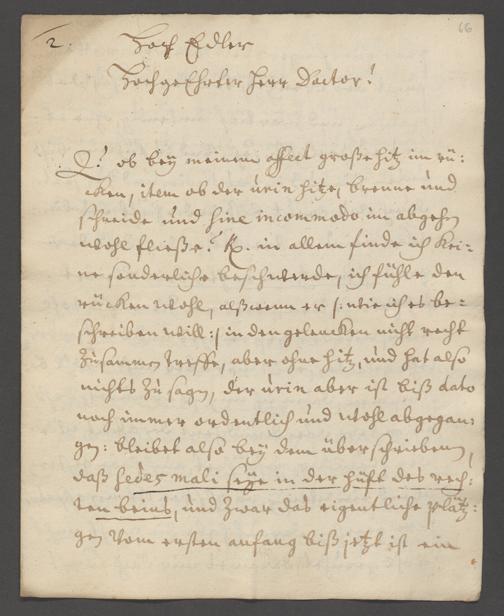 66
2.
Hoch Edler
Hochgeehrter Herr Doctor!
Q. ob bey meinem affect große hitz im rü:
cken, item ob der urin hitze, brenne und
schneide und sine incommodo im abgehen
wohl fließe? R. in allem finde ich kei-
ne sonderliche beschwerde, ich fühle den
rücken wohl, alßwenn er /: wie ich es be-
schreiben will :/ in den gelencken nicht recht
zusammen treffe, aber ohne hitz, und hat also
nichts zu sagen, der urin aber ist biß dato
noch immer ordentlich und wohl abgegan:
gen: bleibet also bey dem überschriebenen,
daß sedes mali seye in der hüft des rech:
ten beins, und zwar das eigentliche plätz:
gen vom ersten anfang biß jetzt ist ein